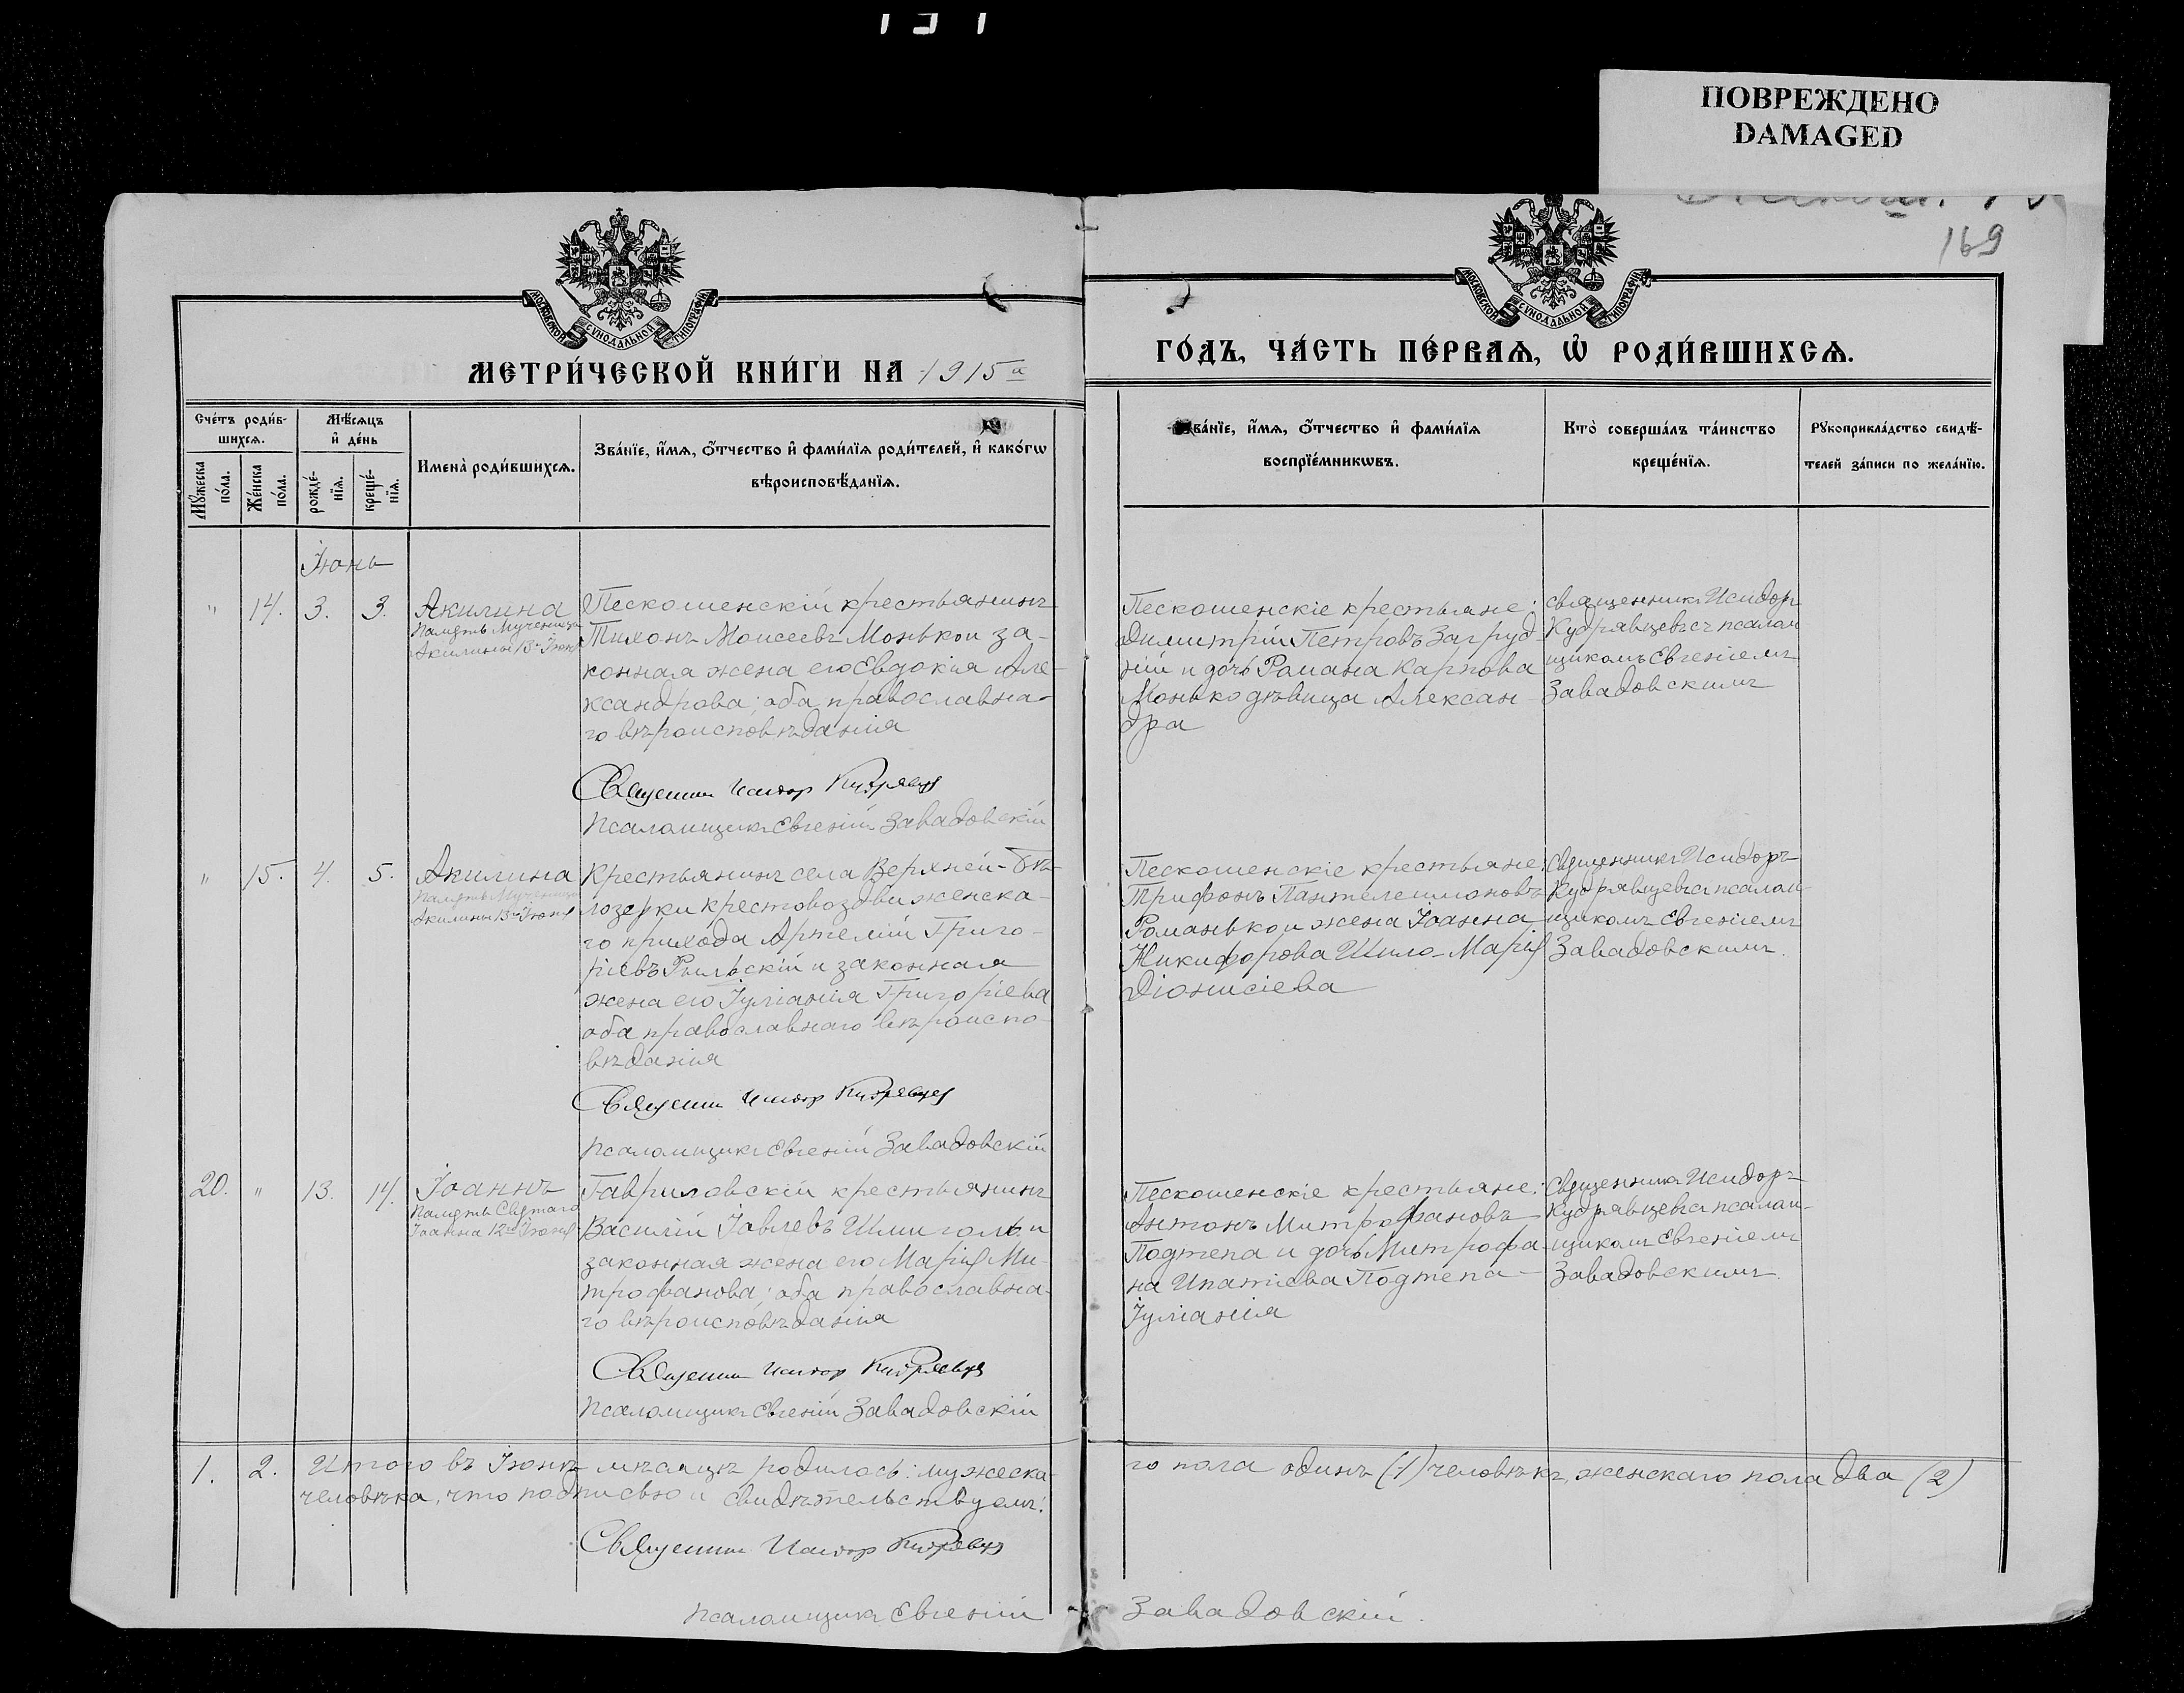 ПОВРЕЖДЕНО
DAMAGED
169
МОСКОВСКОЙ СУНОДАЛЬНОЙ ТИПОГРАФІИ
МОСКОВСКОЙ СУНОДАЛЬНОЙ ТИПОГРАФІИ
МЕТРИ́ЧЕСКОЙ КНИ́ГИ НА 1915й
ГО́ДЪ, ЧА́СТЬ ПЕ́РВАѦ, Ѡ҆ РОДИ́ВШИХСѦ.
Сче́тъ роди́в-
шихсѧ.
Мꙋ́жеска по́ла.
Же́нска по́ла.
Мѣ́сѧцъ
и҆ де́нь
рожде́-
нїѧ.
креще́-
нїѧ.
Имена̀ роди́вшихсѧ.
Зва́нїе, и҆́мѧ, ѻ҆́тчество и҆ фами́лїѧ роди́телей, и҆ како́гѡ
вѣроисповѣ́данїѧ.
Зва́нїе, и҆́мѧ, ѻ҆́тчество и҆ фами́лїѧ
воспрїе́мникѡвъ.
Кто̀ соверша́лъ та́инство
креще́нїѧ.
Рꙋкоприкла́дство свидѣ́-
телей за́писи по жела́нїю.
Іюнь
" 14. 3. 3. Акилина
Память Мученицы
Акилины 13го Іюня
Пескошенскій крестьянинъ
Тихонъ Моисеевъ Монько и за-
конная жена его Евдокія Але-
ксандрова; оба православна-
го вѣроисповѣданія
Священникъ Исидор Кудрявцев
Псаломщикъ Евгеній Завадовскій
Пескошенскіе крестьяне:
Димитрій Петровъ Загруд-
ній и дочь Романа Карпова
Монько дѣвица Алексан-
дра
Священникъ Исидоръ
Кудрявцевъ съ псалом-
щикомъ Евгеніемъ
Завадовскимъ
" 15. 4. 5. Акилина
Память Мученицы
Акилины 13го Іюня
Крестьянинъ села Верхней-Бѣ-
лозерки Крестовоздвиженска-
го прихода Артемій Григо-
ріевъ Рыльскій и законная
жена его Іуліанія Григоріева
оба православнаго вѣроиспо-
вѣданія
Священник Исидор Кудрявцев
Псаломщикъ Евгеній Завадовскій
Пескошенскіе крестьяне:
Трифонъ Пантелеимоновъ
Романько и жена Іоанна
Никифорова Шило Марія
Діонисіева
Священникъ Исидоръ
Кудрявцевъ съ псалом-
щикомъ Евгеніемъ
Завадовскимъ.
20. " 13. 14. Іоаннъ
Память Святаго
Іоанна 12го Іюня
Гавриловскій крестьянинъ
Василій Іовлевъ Шмиголь и
законная жена его Марія Ми-
трофанова; оба православна-
го вѣроисповѣданія
Священник Исидор Кудрявцев
Псаломщикъ Евгеній Завадовскій
Пескошенскіе крестьяне:
Антонъ Митрофановъ
Подтепа и дочь Митрофа-
на Ипатіева Подтепа
Іуліанія
Священникъ Исидоръ
Кудрявцевъ съ псалом-
щикомъ Евгеніемъ
Завадовскимъ.
1. 2. Итого въ Іюнѣ мѣсяцѣ родилось: мужеска-
го пола одинъ (1) человѣкъ, женскаго пола два (2)
человѣка, что подписью и свидѣтельствуемъ:
Священник Исидор Кудрявцев
Псаломщикъ Евгеній Завадовскій.